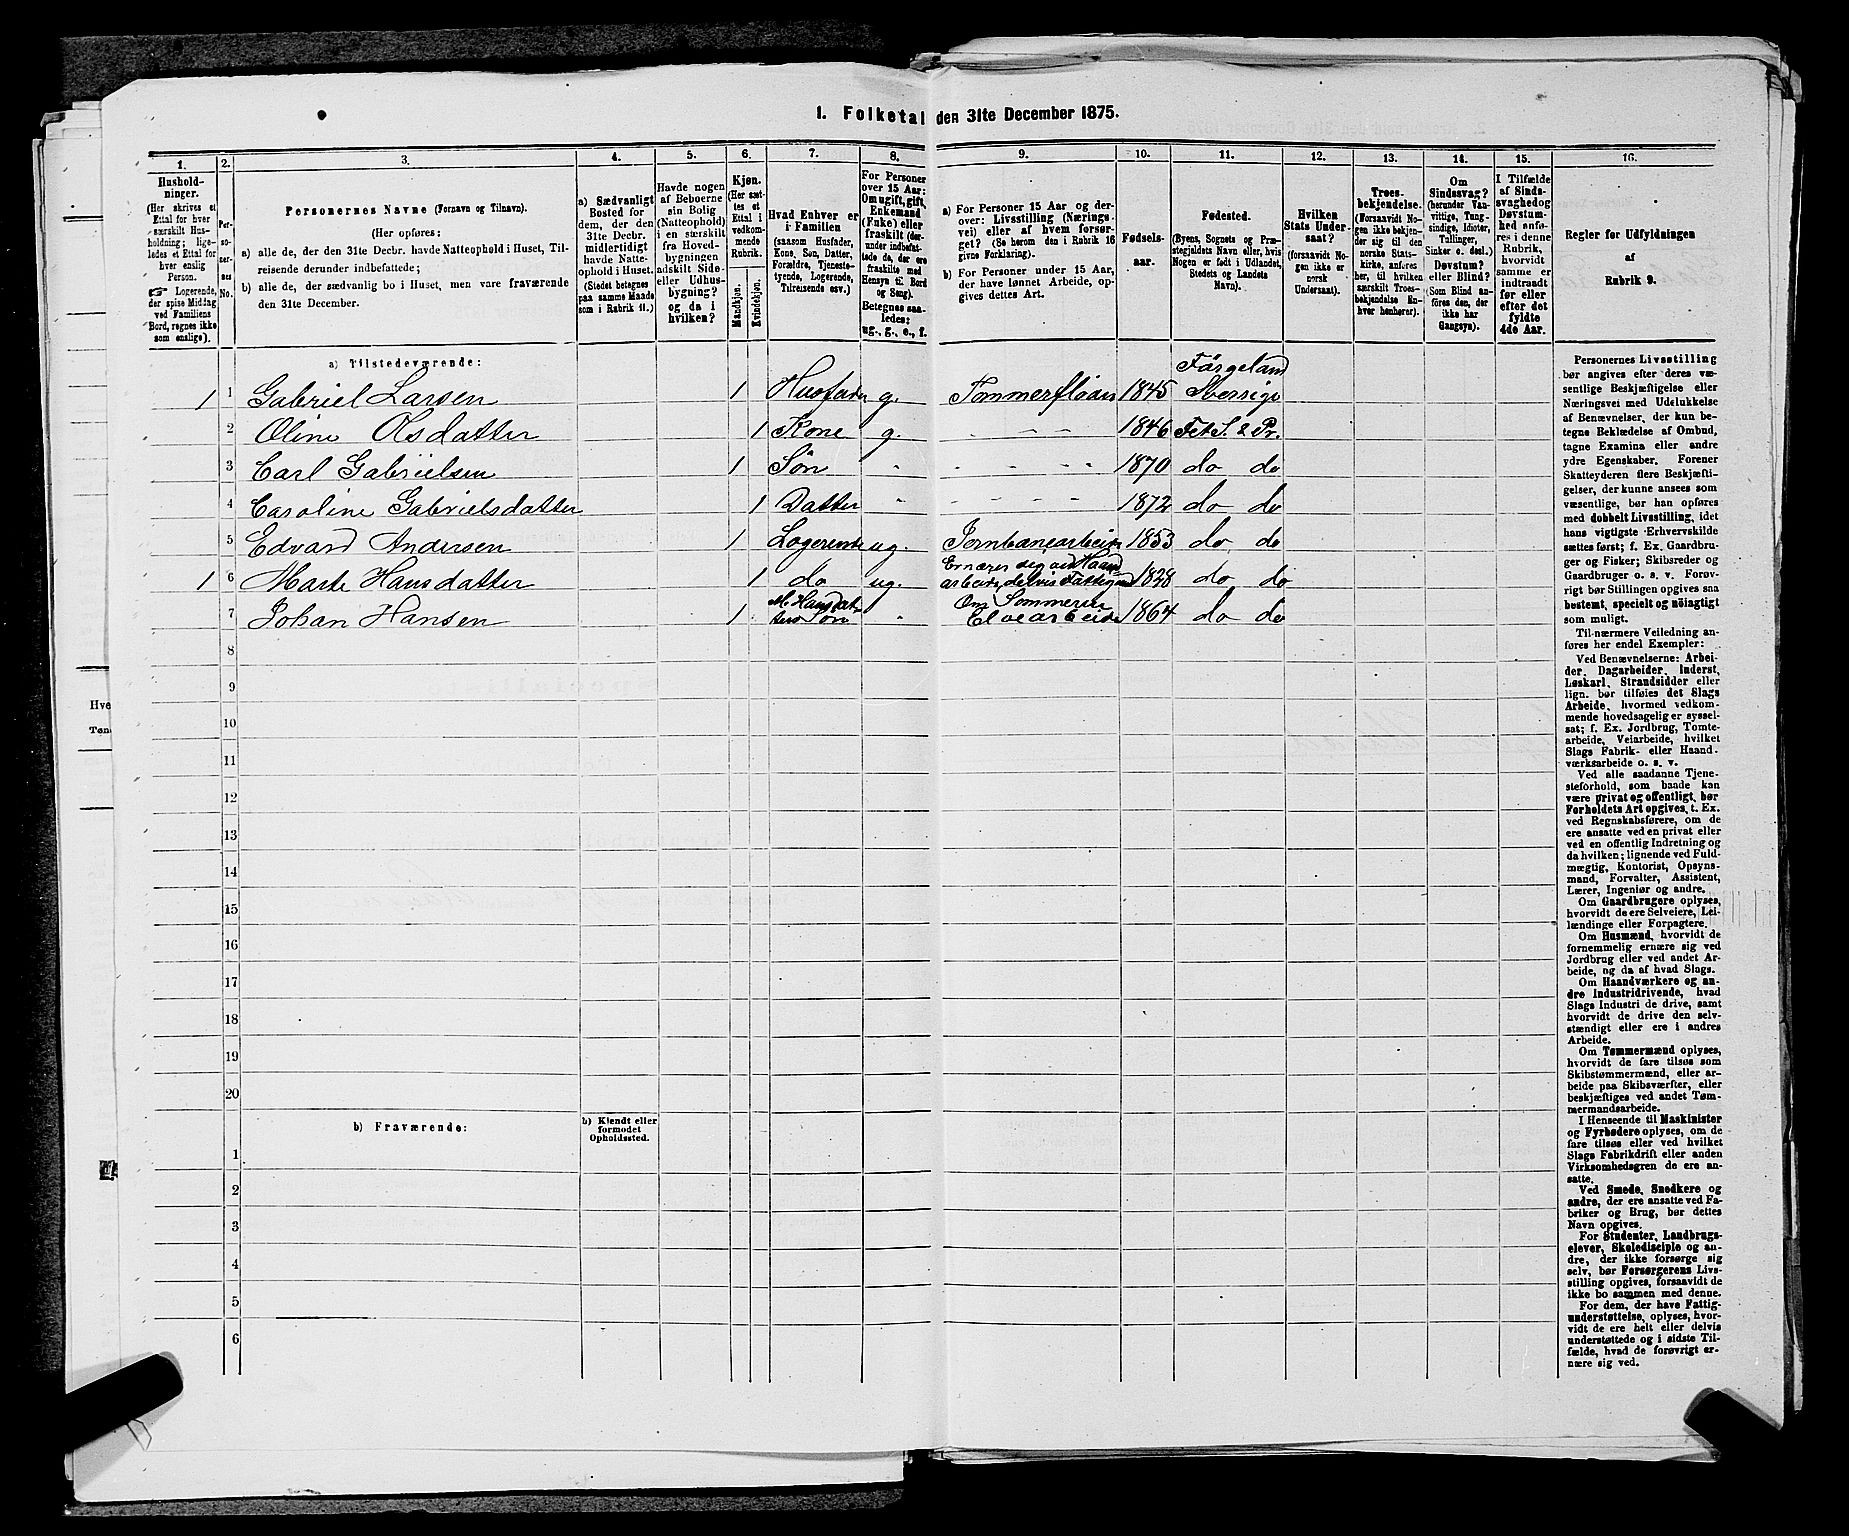 1. Folketal den 31te December 1875.
1.
2.
3.
4.
5.
6.
7.
8.
9.
10.
11.
12.
13.
14.
15.
16.
Hushold-
ninger.
(Her skrives et
Ettal for hver
særskilt Hus-
holdning; lige-
ledes et Ettal for
hver enslig
Person.
☞ Logerende,
der spise Middag
ved Familiens
Bord, regnes ikke
som enslige).
Per-
so-
ner-
nes
No.
Personernes Navne (Fornavn og Tilnavn).
(Her opføres:
a) alle de, der den 31te Decbr. havde Natteophold i Huset, Til-
reisende derunder indbefattede;
b) alle de, der sædvanlig bo i Huset, men vare fraværende
den 31te December.
a) Sædvanligt
Bosted for
dem, der den
31te Decbr.
midlertidigt
havde Natte-
ophold i Huset.
(Stedet betegnes
paa samme Maade
som i Rubrik 11.)
Havde nogen
af Beboerne
sin Bolig
(Natteophold)
i en særskilt
fra Hoved-
bygningen
adskilt Side-
eller Udhus-
bygning?
og da i
hvilken?
Kjøn.
(Her sæt-
tes et
Ettal i
vedkom-
mende
Rubrik.
Mandkjøn.
Kvindekjøn.
Hvad Enhver er
i Familien
(saasom Husfader,
Kone, Søn, Datter,
Forældre, Tjeneste-
tyende, Logerende,
Tilreisende osv.)
For Personer
over 15 Aar:
Om ugift, gift,
Enkemand
(Enke) eller
fraskilt (der-
under indbefat-
tede de, der ere
fraskilte med
Hensyn til Bord
og Seng).
Betegnes saa-
ledes:
ug., g., e., f.
a) For Personer 15 Aar og der-
over: Livsstilling (Nærings-
vei) eller af hvem forsør-
get? (Se herom den i Rubrik 16
givne Forklaring).
b) For Personer under 15 Aar,
der have lønnet Arbeide, op-
gives dettes Art.
Fødsels-
aar.
Fødested.
(Byens, Sognets og Præ-
stegjeldets Navn eller, hvis
Nogen er født i Udlandet,
Stedets og Landets
Navn).
Hvilken
Stats Under-
saat?
(forsaavidt No-
gen ikke er
norsk
Undersaat).
Troes-
bekjendelse.
(Forsaavidt No-
gen ikke bekjen-
der sig til den
norske Stats-
kirke, anføres
her, til hvilken
særskilt Troes-
bekjendelse En-
hver henhører).
Om
Sindssvag?
(herunder Van-
vittige, Tung-
sindige, Idioter,
Tullinger,
Sinker o. desl.)
Døvstum?
eller Blind?
(Som Blind an-
føres den, der
ikke har
Gangsyn).
I Tilfælde
af Sinds-
svaghed og
Døvstum-
hed anfø-
res i denne
Rubrik,
hvorvidt
samme er
indtraadt
før eller
efter det
fyldte
4de Aar.
Regler for Udfyldningen
af
Rubrik 9.
a) Tilstedeværende:
Färgeland
1 1 Gabriel Larsen 1 Husfader g. Tømmerfløder 1845 Sverrige
2 Oline Olsdatter 1 Kone g. - - - 1846 Fet S. & Pr.
3 Carl Gabrielsen 1 Søn - - - - 1870 do do
4 Caroline Gabrielsdatter 1 Datter - - - - 1872 do do
5 Edvard Andersen 1 Logerende ug. Jernbanearbeider 1853 do do
Ernærer sig ved Haand
1 6 Marte Hansdatter 1 do ug. arbeide, delvis Fattigund 1828 do do
M. Hansdat- Om Sommeren
7 Johan Hansen 1 ters Søn - Elvearbeider 1864 do do
8
9
10
11
12
13
14
15
16
17
18
19
20
b) Fraværende:
b) Kjendt eller
formodet
Opholdssted.
1
2
3
4
5
6
Personernes Livsstilling
bør angives efter deres væ-
sentlige Beskjæftigelse eller
Næringsvei med Udelukkelse
af Benævnelser, der kun be-
tegne Beklædelse af Ombud,
tagne Examina eller andre
ydre Egenskaber. Forener
Skatteyderen flere Beskjæfti-
gelser, der kunne ansees som
væsentlige, bør han opføres
med dobbelt Livsstilling, idet
hans vigtigste Erhvervskilde
sættes først; f. Ex. Gaardbru-
ger og Fisker; Skibsreder og
Gaardbruger o. s. v. Forøv-
rigt bør Stillingen opgives saa
bestemt, specielt og nøiagtigt
som muligt.
Til nærmere Veiledning an-
føres her endel Exempler:
Ved Benævnelserne: Arbei-
der, Dagarbeider, Inderst,
Løskarl, Strandsidder eller
lign. bør tilføies det Slags
Arbeide, hvormed vedkom-
mende hovedsagelig er syssel-
sat; f. Ex. Jordbrug, Tomte-
arbeide, Veiarbeide, hvilket
Slags Fabrik- eller Haand-
værksarbeide o. s. v.
Ved alle saadanne Tjene-
steforhold, som baade kan
være privat og offentligt, bør
Forholdets Art opgives, t. Ex.
ved Regnskabsførere, om de
ere ansatte ved en privat eller
ved en offentlig Indretning og
da hvilken; lignende ved Fuld-
mægtig, Kontorist, Opsyns-
mand, Forvalter, Assistent,
Lærer, Ingeniør og andre.
Om Gaardbrugere oplyses,
hvorvidt de ere Selveiere, Lei-
lændinge eller Forpagtere.
Om Husmænd, hvorvidt de
fornemmelig ernære sig ved
Jordbrug eller ved andet Ar-
beide, og da af hvad Slags.
Om Haandværkere og an-
dre Industridrivende, hvad
Slags Industri de drive, samt
hvorvidt de drive den selv-
stændigt eller ere i andres
Arbeide.
Om Tømmermænd oplyses,
hvorvidt de fare tilsøs som
Skibstømmermænd, eller ar-
beide paa Skibsværfter, eller
beskjæftiges ved andet Tøm-
mermandsarbeide.
I Henseende til Maskinister
og Fyrbødere oplyses, om de
fare tilsøs eller ved hvilket
Slags Fabrikdrift eller anden
Virksomhedsgren de ere an-
satte.
Ved Smede, Snedkere og
andre, der ere ansatte ved Fa-
briker og Brug, bør dettes
Navn opgives.
For Studenter, Landbrugs-
elever, Skoledisciple og an-
dre, der ikke forsørge sig
selv, bør Forsørgerens Livs-
stilling opgives, forsaavidt de
ikke bo sammen med denne.
For dem, der have Fattig-
understøttelse, oplyses, hvor-
vidt de ere helt eller delvis
understøttede og i sidste Til-
fælde, hvad de forøvrigt er-
nære sig ved.